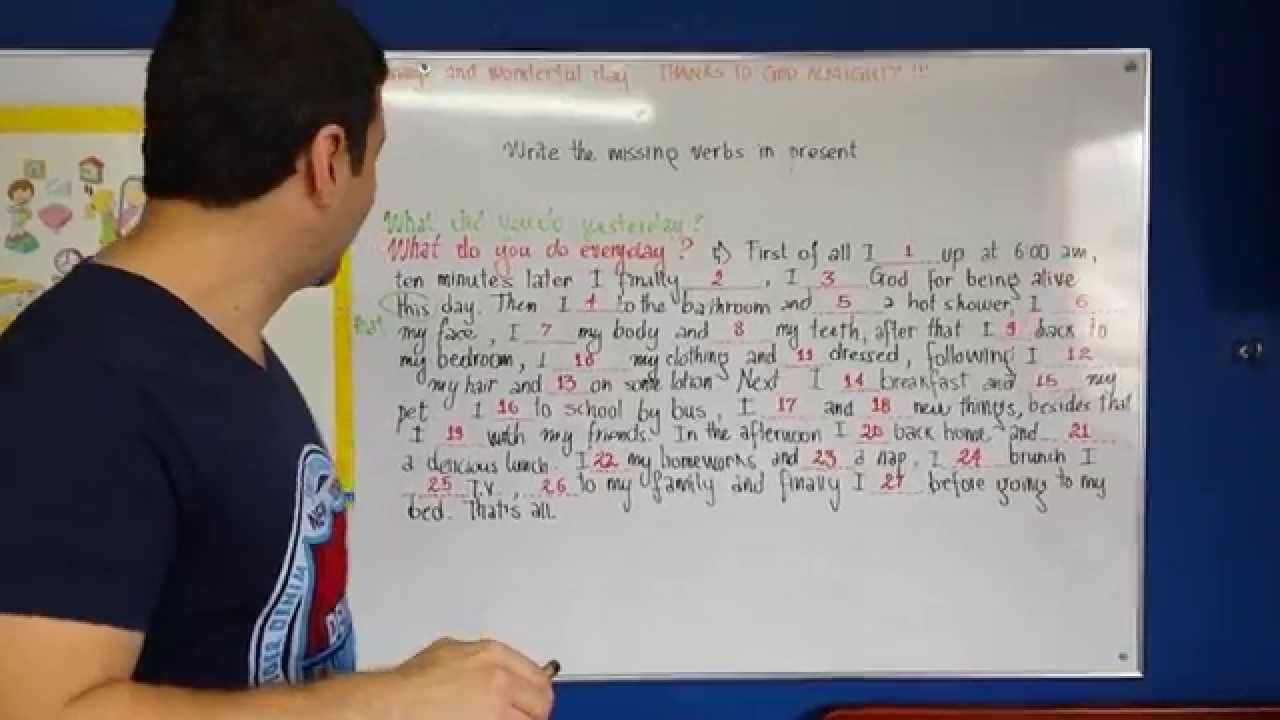 and wonderful day THANKS TO GOD ALMIGHTY !!!
Write the missing verbs in present
What did you do yesterday?
What do you do everyday? First of all I 1 up at 6:00 am,
ten minutes later I finally 2 , I 3 God for being alive
this day. Then I 4 to the bathroom and 5 a hot shower, I 6
that
my face, I 7 my body and 8 my teeth, after that I 9 back to
my bedroom, I 10 my clothing and 11 dressed, following I 12
my hair and 13 on some lotion Next I 14 breakfast and 15 my
pet I 16 to school by bus, I 17 and 18 new things, besides that
I 19 with my friends. In the afternoon I 20 back home and 21
a delicious lunch. I 22 my homeworks and 23 a nap, I 24 brunch I
25 T.V , 26 to my family and finally I 27 before going to my
bed. That's all.
DENIM